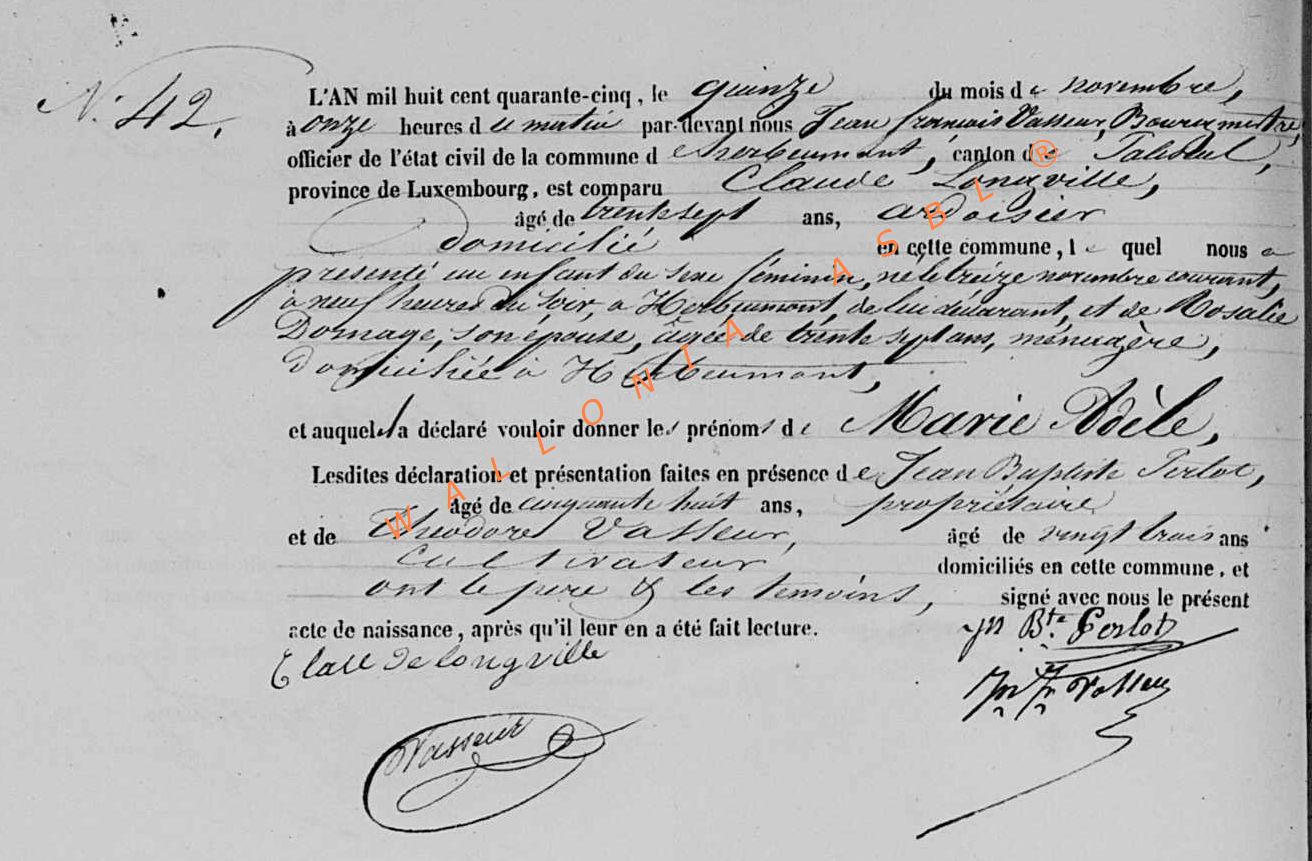 N.° 42.
L'AN mil huit cent quarante-cinq, le quinze du mois de novembre,
à onze heures du matin par-devant nous Jean françois Vasseur, Bourgmestre,
officier de l'état civil de la commune d'herbeumont, canton de Paliseul,
province de Luxembourg, est comparu Claude Longville,
âgé de trente sept ans, ardoisier
domicilié en cette commune, le quel nous a
présenté un enfant du sexe féminin, né le treize novembre courant,
à neuf heures du soir, à Herbeumont, de lui déclarant, et de Rosalie
Domage, son épouse, âgée de trente sept ans, ménagère,
domiciliée à Herbeumont,
et auquel a déclaré vouloir donner les prénoms de Marie Adèle,
Lesdites déclaration et présentation faites en présence de Jean Baptiste Perlot,
âgé de cinquante huit ans, propriétaire
et de Théodore Vasseur, âgé de vingt trois ans
cultivateur domiciliés en cette commune, et
ont le père & les témoins, signé avec nous le présent
acte de naissance, après qu'il leur en a été fait lecture.
jn Bte. Perlot
longville
Jn fs Vasseur
Vasseur
WALLONIA ASBL ®